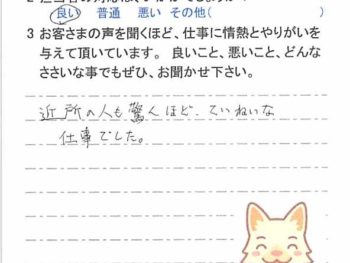 良い 普通 悪い その他( )
3 お客さまの声を聞くほど、仕事に情熱とやりがいを
与えて頂いています。 良いこと、悪いこと、どんな
ささいな事でもぜひ、お聞かせ下さい。
近所の人も驚くほど、ていねいな
仕事でした。